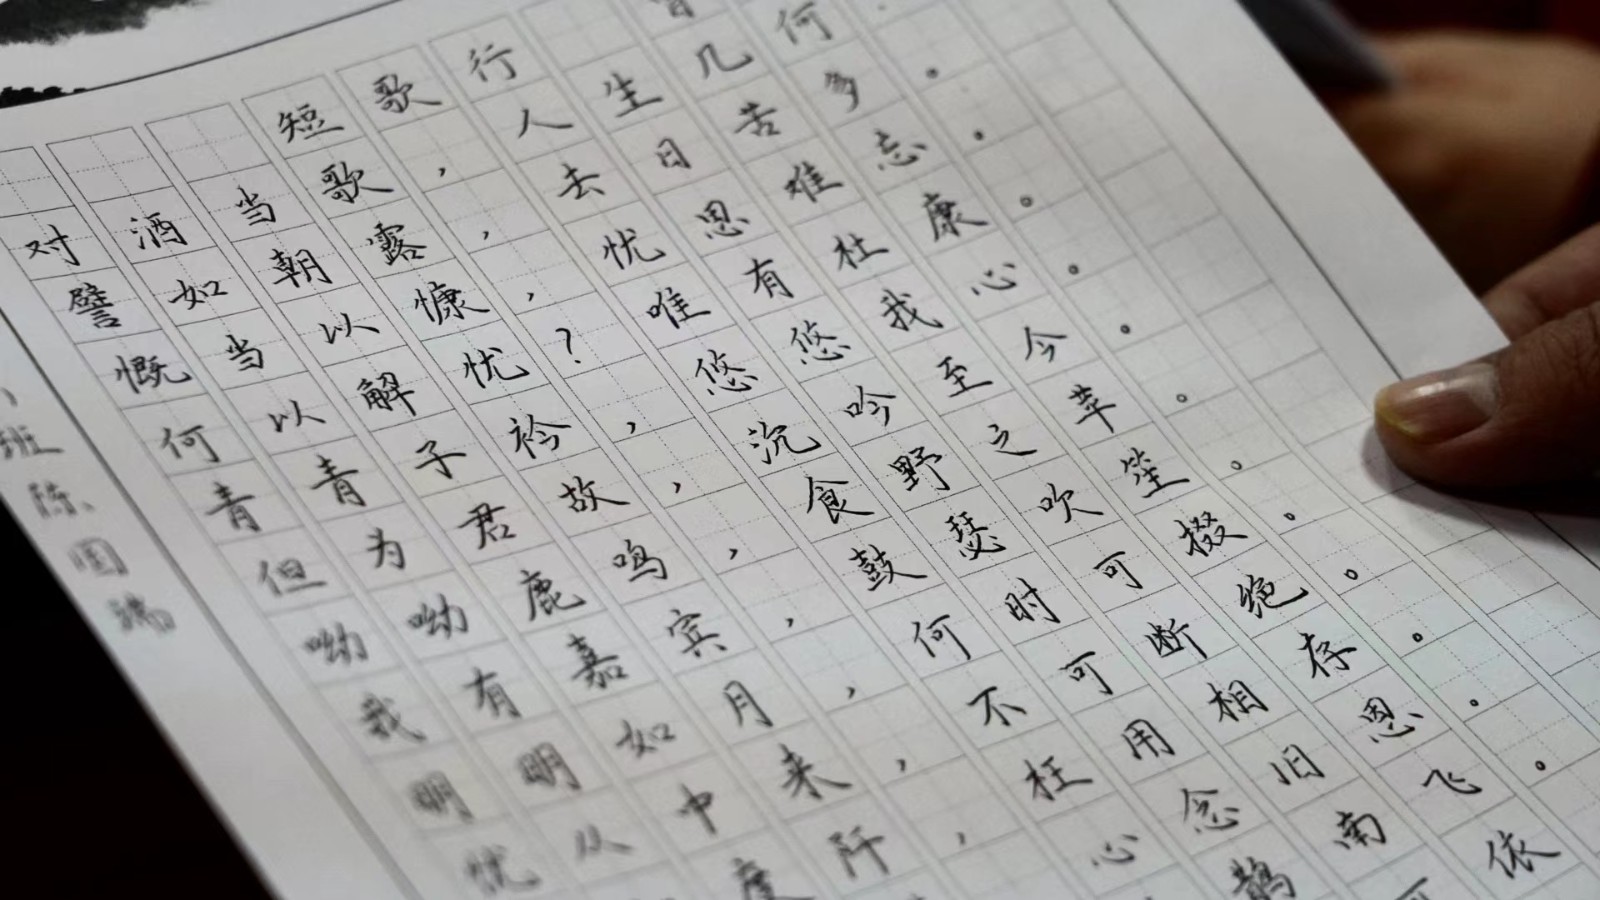 短歌行
对酒当歌，人生几何。
譬如朝露，去日苦多。
慨当以慷，忧思难忘。
何以解忧？唯有杜康。
青青子衿，悠悠我心。
但为君故，沉吟至今。
呦呦鹿鸣，食野之苹。
我有嘉宾，鼓瑟吹笙。
明明如月，何时可掇。
忧从中来，不可断绝。
度阡，枉用相存。
心念旧恩。
鹊南飞。
可依
班陈国